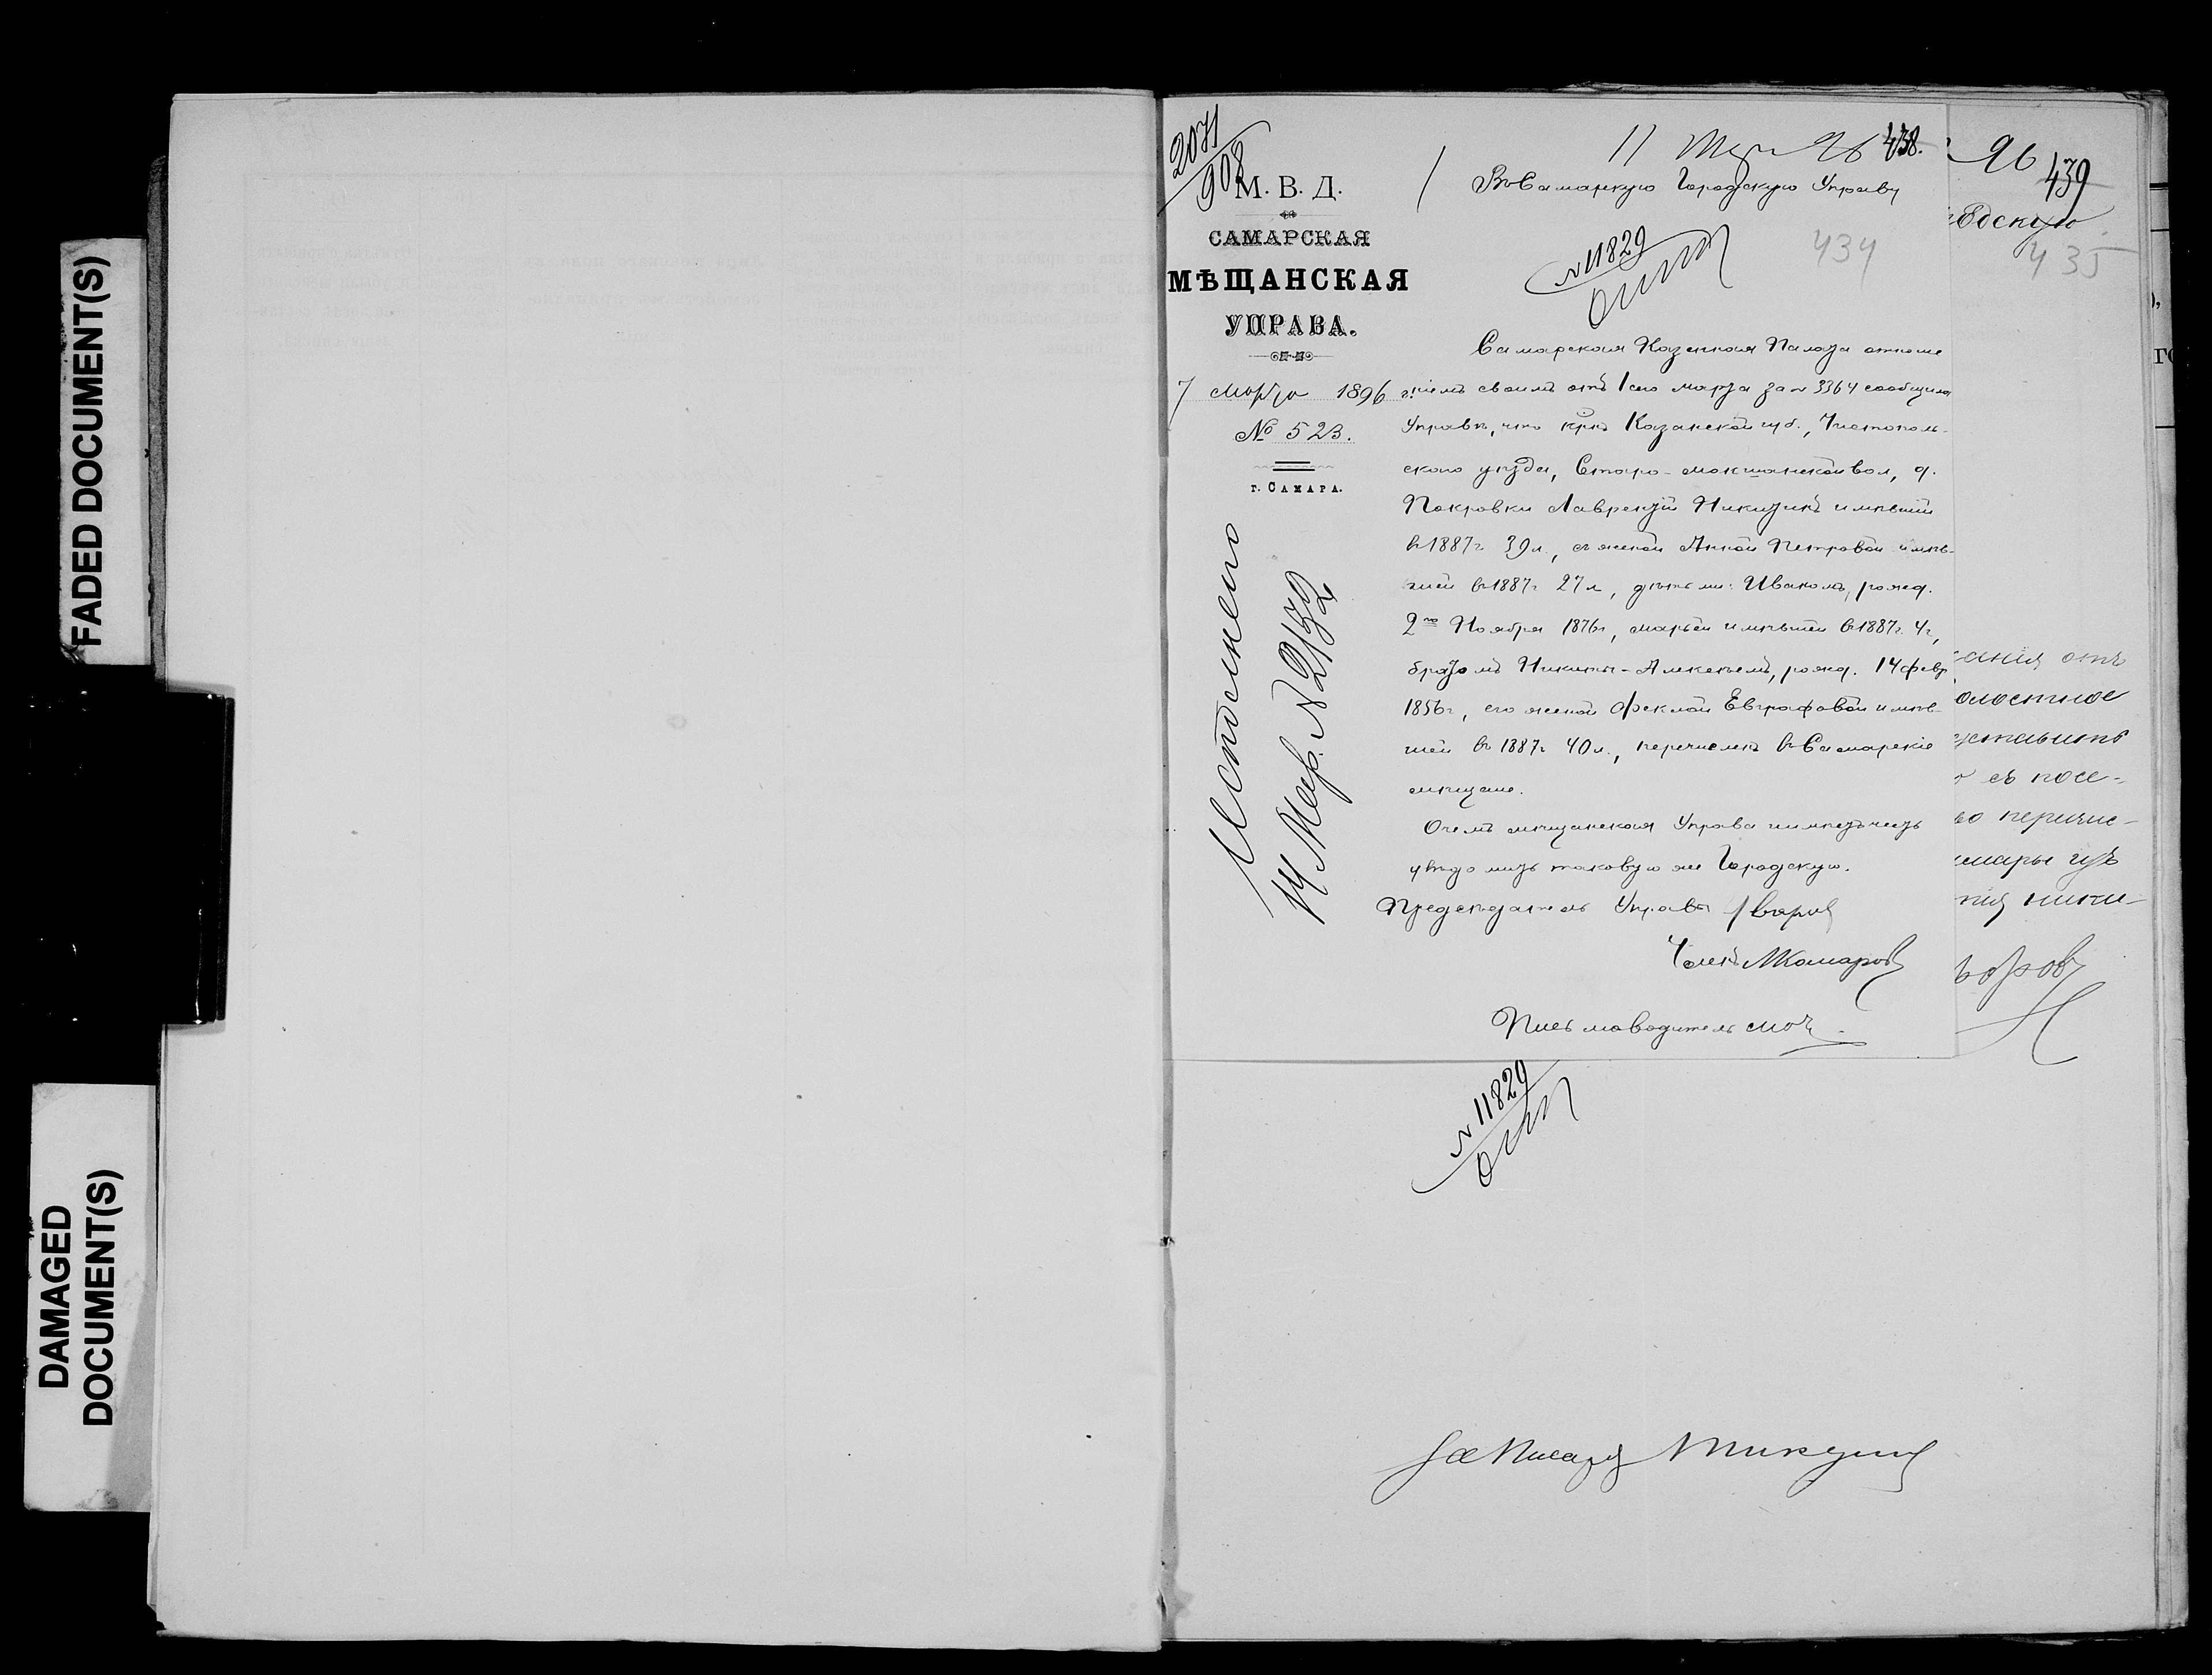 FADED DOCUMENT(S)
DAMAGED
DOCUMENT(S)
2071
908
М. В. Д.
САМАРСКАЯ
МѢЩАНСКАЯ
УПРАВА.
7 Марта 1896 г.
№ 523.
г. САМАРА.
Исполнено
14 Мар. № 2132
11 Мар 96 438.
Въ Самарскую Городскую Управу
№ 11829
434
Самарская Казенная Палата отноше
ніемъ своимъ отъ 1 сего марта за № 3364 сообщила
Управѣ, что кр-нъ Казанской губ., Чистополь-
скаго уѣзда, Старо-мокшанской вол., д.
Покровки Лаврентій Никитинъ имѣвшій
въ 1887 г. 39 л., съ женой Анной Петровой имѣв-
шей въ 1887 г. 27 л., дѣтьми: Иваномъ, рожд.
2го Ноября 1876 г., Марьей имѣвшей въ 1887 г. 4 г.,
братомъ Никиты-Алексѣемъ, рожд. 14 февр
1856 г., его женой Феклой Евграфовой имѣв-
шей въ 1887 г. 40 л., перечисленъ въ Самарскіе
мѣщане.
О чемъ мѣщанская Управа имѣетъ честь
увѣдомить таковую же Городскую.
Предсѣдатель Управы
Членъ МКомаровъ
Письмоводитель
96
439
одскую
435
анія отъ
олостное
ставить
съ посе-
во перечис-
мары изъ
нія ники-
воровъ
№ 11829
За Писаря